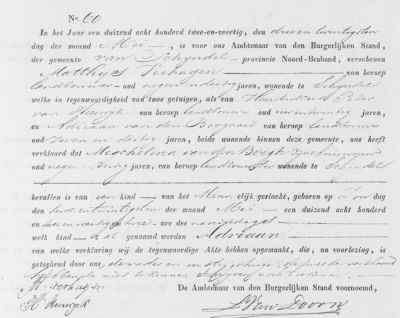 No. 60
In het Jaar een duizend acht honderd twee-en-veertig, den drie en twintigsten
dag der maand Mei, is voor ons Ambtenaar van den Burgerlijken Stand,
der gemeente van Schyndel provincie Noord-Braband, verschenen
Matthijs Verhagen van beroep
landbouwer oud negen en dertig jaren, wonende te Schyndel
welke in tegenwoordigheid van twee getuigen, als van Hendrikus Peter
van Heeswijk van beroep landbouwer oud vier en twintig jaren,
en Adriaan van den Bogaard van beroep landbouwer
oud zeven en dertig jaren, beide wonende binnen deze gemeente, ons heeft
verklaard dat Michelina van den Bergh zijne huisvrouw
oud negen en dertig jaren, van beroep landbouwster wonende te Schyndel
bevallen is van een kind van het Mannelijk geslacht, geboren op Zondag
den twee en twintigsten der maand Mei een duizend acht honderd
twee en veertig ten ure des namiddags
welk kind zal genaamd worden Adriaan
van welke verklaring wij de tegenwoordige Akte hebben opgemaakt, die, na voorlezing, is
geteekend door ons, den vader en eerste getuige, de tweede
hebbende niet te kunnen schryven
M Verhagen
H Heeswyk
De Ambtenaar van den Burgerlijken Stand voornoemd,